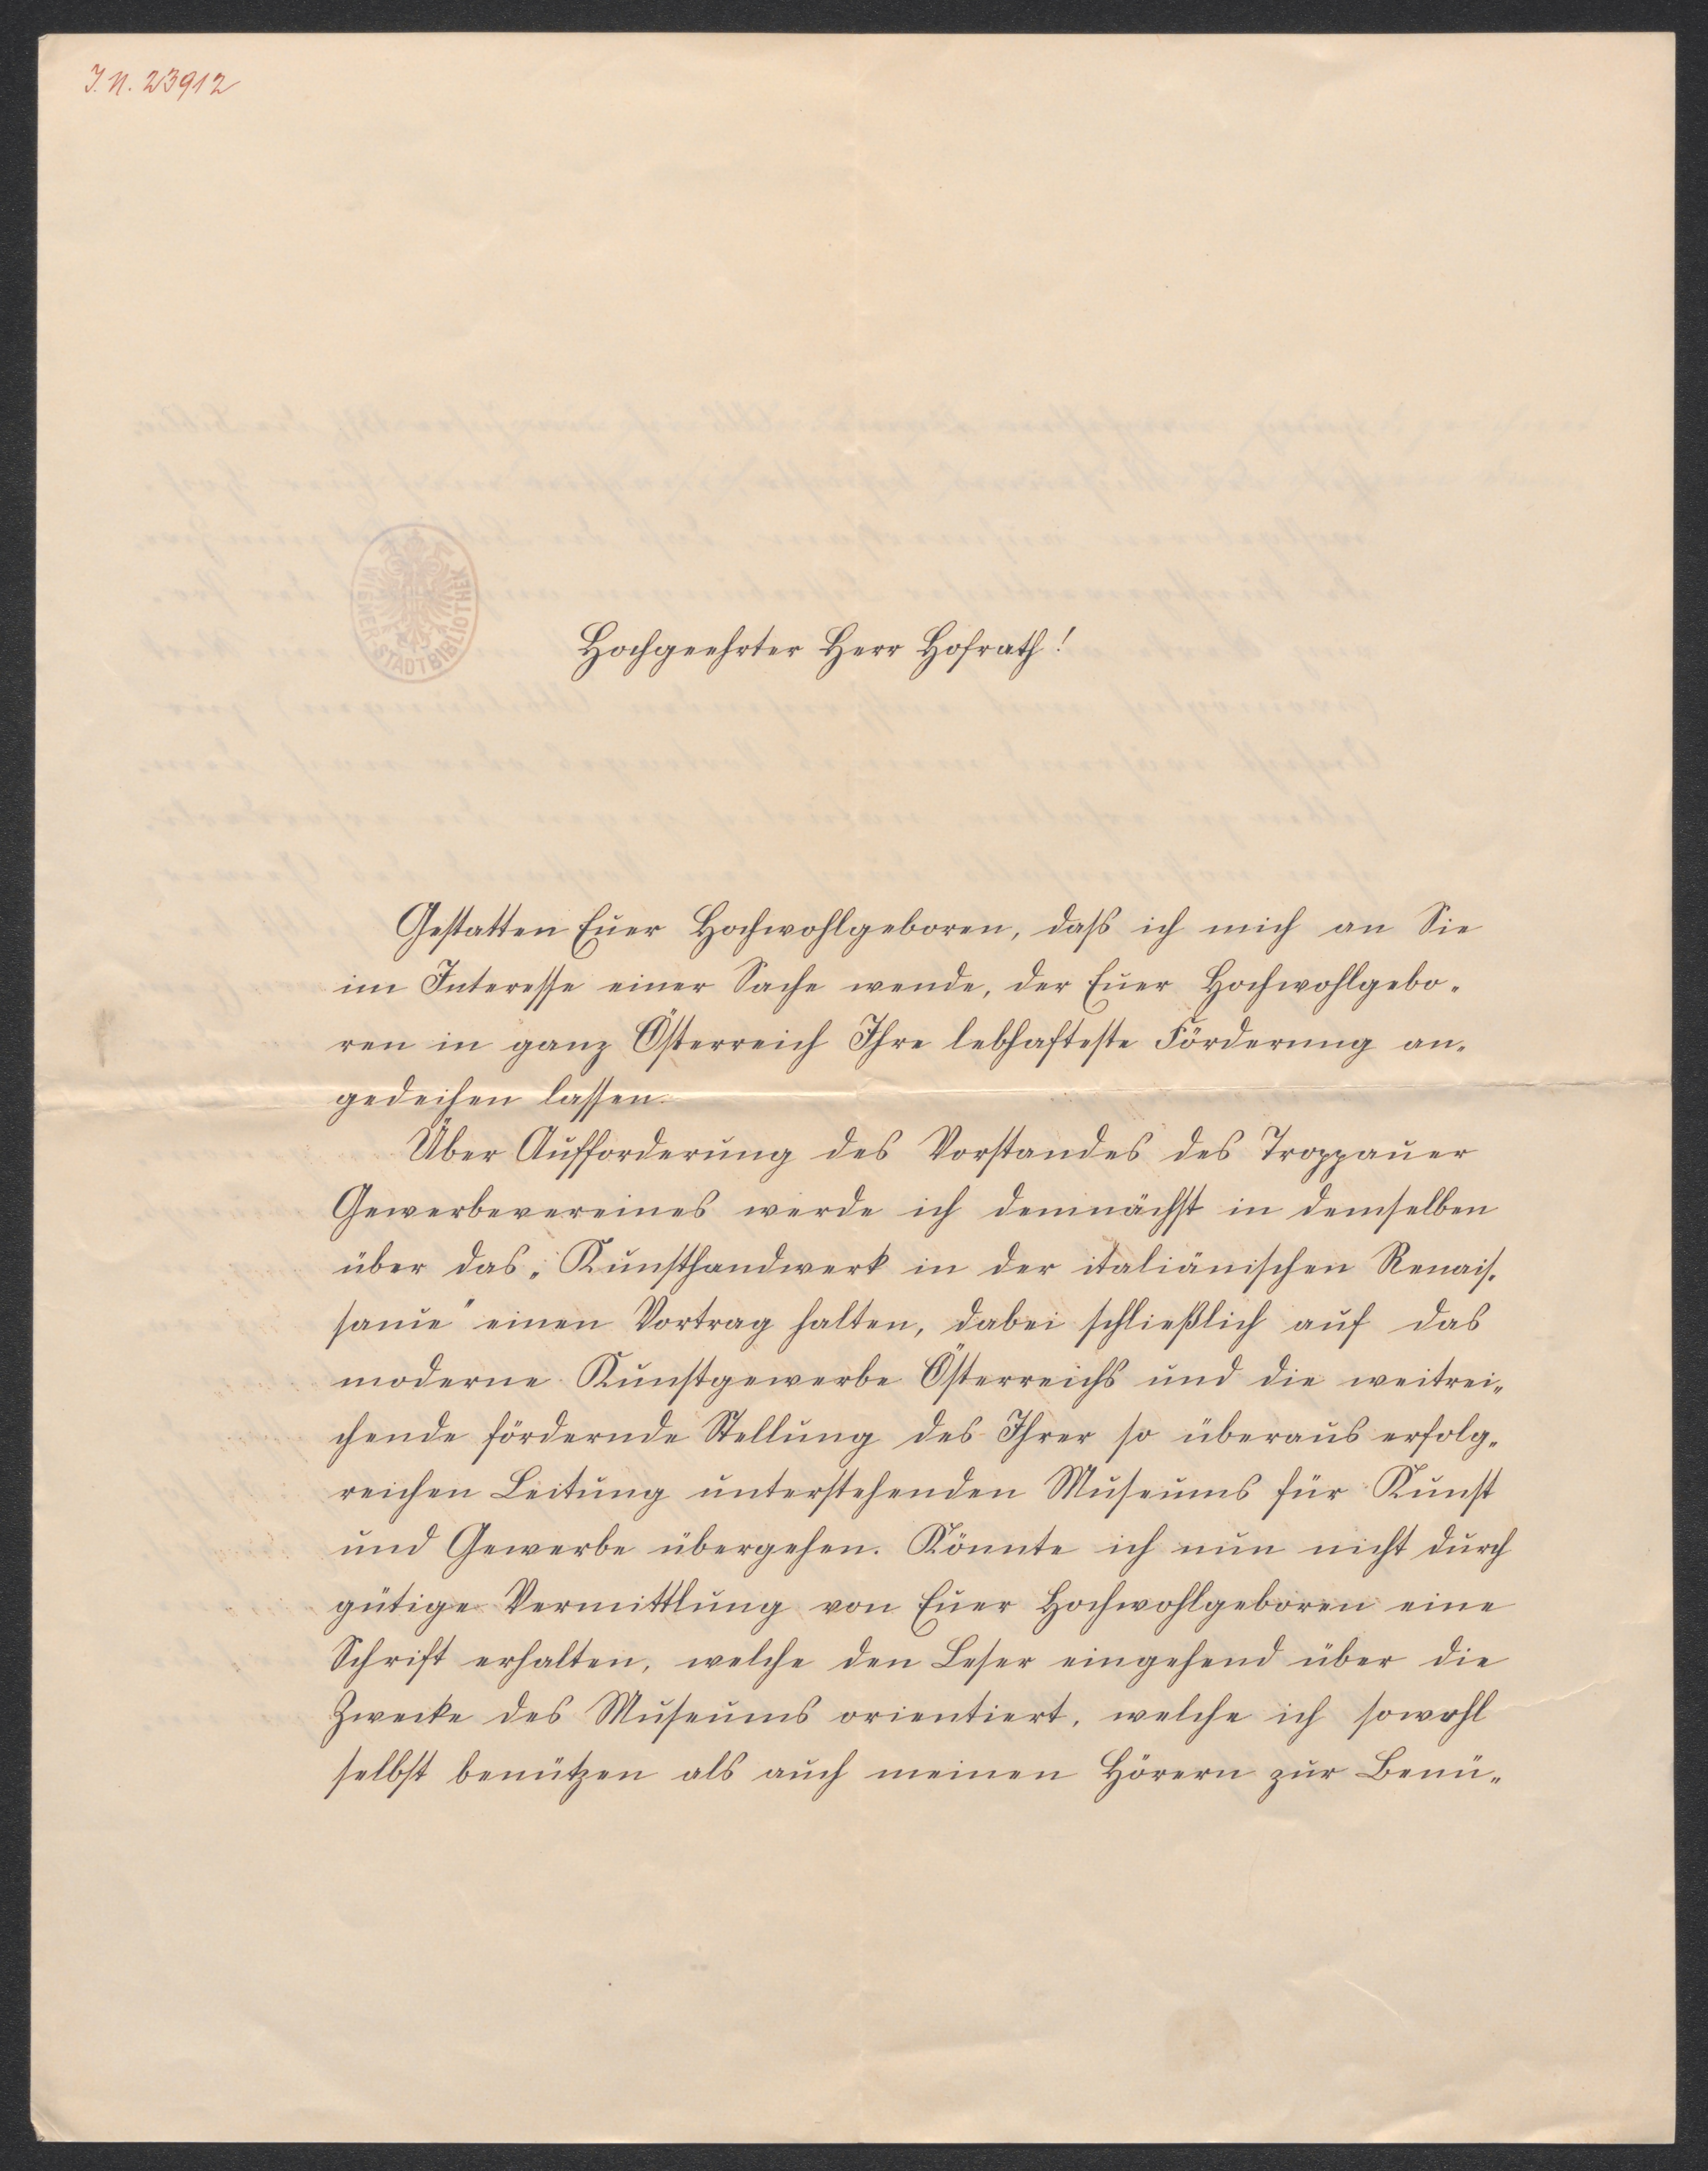 I.N. 23912
WIENER STADTBIBLIOTHEK
Hochgeehrter Herr Hofrath!
Gestatten Euer Hochwohlgeboren, daß ich mich an Sie
im Interesse einer Sache wende, der Euer Hochwohlgebo-
ren in ganz Österreich Ihre lebhafteste Förderung an-
gedeihen lassen.
Über Aufforderung des Vorstandes des Troppauer
Gewerbevereines werde ich demnächst in demselben
über das „Kunsthandwerk in der italiänischen Renais-
sance" einen Vortrag halten, dabei schließlich auf das
moderne Kunstgewerbe Österreichs und die weitrei-
chende fördernde Stellung des Ihrer so überaus erfolg-
reichen Leitung unterstehenden Museums für Kunst
und Gewerbe übergehen. Könnte ich nun nicht durch
gütige Vermittlung von Euer Hochwohlgeboren eine
Schrift erhalten, welche den Leser eingehend über die
Zwecke des Museums orientiert, welche ich sowohl
selbst benützen als auch meinen Hörern zur Benü-